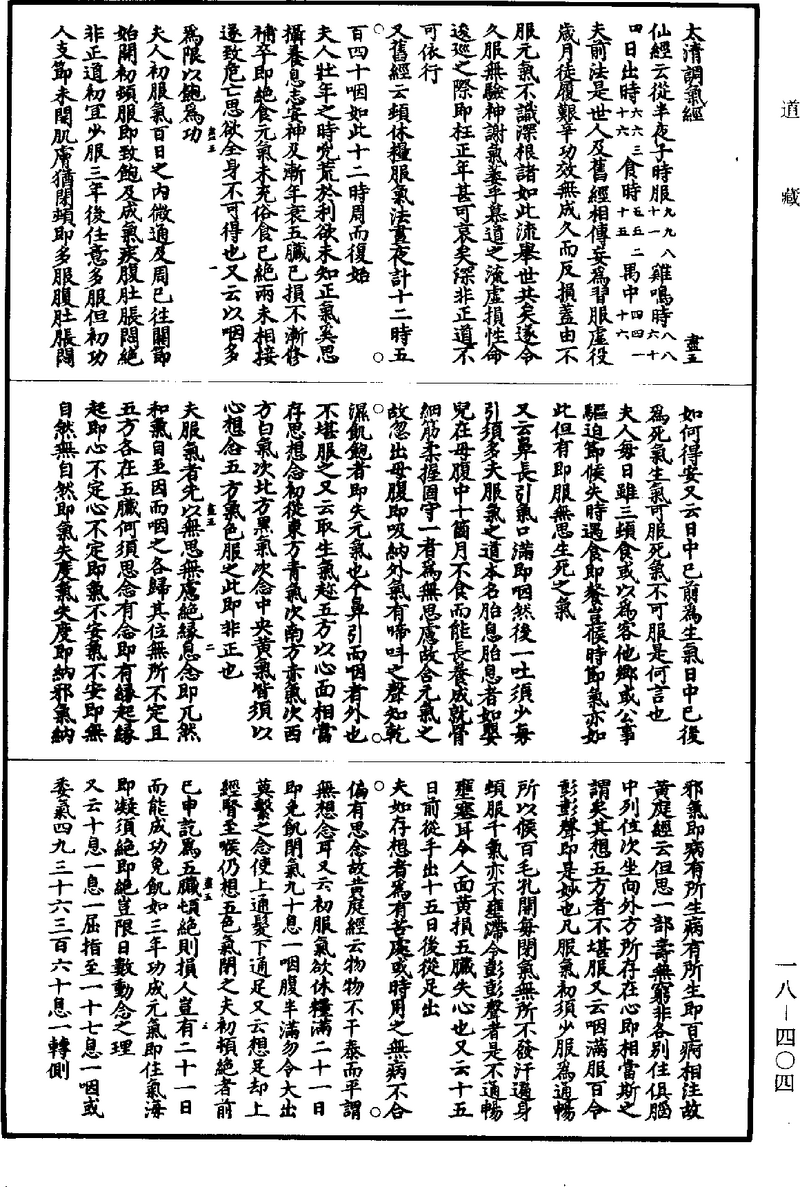 道藏
太清調氣經　盡五
仙經云從半夜子時服九九八十一雞鳴時八八六十
四日出時六六三十六食時五五二十五禺中四四一十六
夫前法是世人及舊經相傳妄為習服虛役
歲月徒履艱辛功效無成久而反損蓋由不
服元氣不識深根諸如此流舉世共矣遂令
久服無驗神謝氣萎乎慕道之流虛損性命
逡巡之際即枉正年甚可哀矣深非正道不
可依行
又舊經云頓休糧服氣法晝夜計十二時五
百四十咽如此十二時周而復始
夫人壯年之時兇荒於利欲未知正氣奚思
攝養息志安神及漸年衰五臟已損不漸修
補卒即絕食元氣未充俗食已絕兩未相接
遂致危亡思欲全身不可得也又云以咽多
為限以飽為功
夫人初服氣百日之內微通及周已往關節
始開初頓服即致飽及成氣疾腹肚脹悶絕
非正道初宜少服三年後任意多服但初功
人支節未開肌膚猶閉頓即多服腹肚脹悶
如何得安又云日中已前為生氣日中已後
為死氣生氣可服死氣不可服是何言也
夫人每日雖三頓食或以為客他鄉或公事
驅迫節候失時遇食即餐豈候時節氣亦如
此但有即服無思生死之氣
又云鼻長引氣口滿即咽然後一吐須少每
引須多夫服氣之道本名胎息胎息者如嬰
兒在母腹中十箇月不食而能長養成就骨
細筋柔握固守一者為無思慮故含元氣之
故忽出母腹即吸納外氣有啼呌之聲知乾
濕飢飽者即失元氣也今鼻引而咽者外也
不堪服之又云取生氣趁五方以心面相當
存思想念初從東方青氣次南方赤氣次西
方白氣次北方黑氣次念中央黃氣皆須以
心想念五方氣色服之此即非正也
夫服氣者先以無思無慮絕緣息念即兀然
和氣自至因而咽之各歸其位無所不定且
五方各在五臟何須思念有念即有緣起緣
起即心不定心不定即氣不安氣不安即無
自然無自然即氣失度氣失度即納邪氣納
邪氣即病有所生病有所生即百病相注故
黃庭經云但思一部壽無窮非各別住俱腦
中列位次坐向外方所存在心即相當斯之
謂矣其想五方者不堪服又云咽滿服百令
彭彭聲即是妙也凡服氣初須少服為通暢
所以候百毛孔開每閉氣無所不發汗遍身
頓服千氣亦不壅滯令彭彭聲者是不通暢
壅塞耳令人面黃損五臟失心也又云十五
日前從手出十五日後從足出
夫如存想者為有苦處或時用之無病不合
偏有思念故黃庭經云物物不干泰而平謂
無想念耳又云初服氣欲休糧滿二十一日
即免飢閉氣九十息一咽腹半滿勿令大出
莫繫之念使上通髮下通足又云想足却上
經腎至喉仍想五色氣閉之夫初頓絕者前
已申訖為五臟頓絕則損人豈有二十一日
而能成功免飢如三年功成元氣即住氣海
即凝須絕即絕豈限日數動念之理
又云十息一息一屈指至一十七息一咽或
委氣四九三十六三百六十息一轉側
一八－四〇四